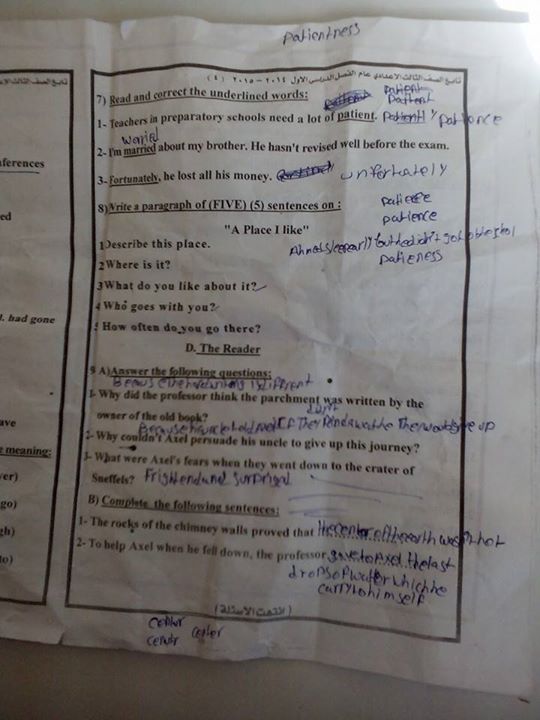 patientness
تابع الصف الثالث الاعدادي عام الفصل الدراسي الاول ٢٠١٤ - ٢٠١٥ (٤)
7) Read and correct the underlined words:
patient
patient
1- Teachers in preparatory schools need a lot of patient. patience
worried
2- I'm married about my brother. He hasn't revised well before the exam.
3- Fortunately, he lost all his money. unfortately
8) Write a paragraph of (FIVE) (5) sentences on :
patience
"A Place I like"
1 Describe this place.
patieness
2 Where is it?
3 What do you like about it?
4 Who goes with you?
5 How often do you go there?
D. The Reader
9 A) Answer the following questions:
is different
1- Why did the professor think the parchment was written by the
owner of the old book?
2- Why couldn't Axel persuade his uncle to give up this journey?
3- What were Axel's fears when they went down to the crater of
Sneffels? Frightend and surprised
B) Complete the following sentences:
1- The rocks of the chimney walls proved that the center of the earth wasn't hot
2- To help Axel when he fell down, the professor gave to Axel the last
drops of water which he
carry to himself
(انتهت الاسئلة)
center
center
ferences
ed
l. had gone
ave
g meaning:
ver)
go)
gh)
to)